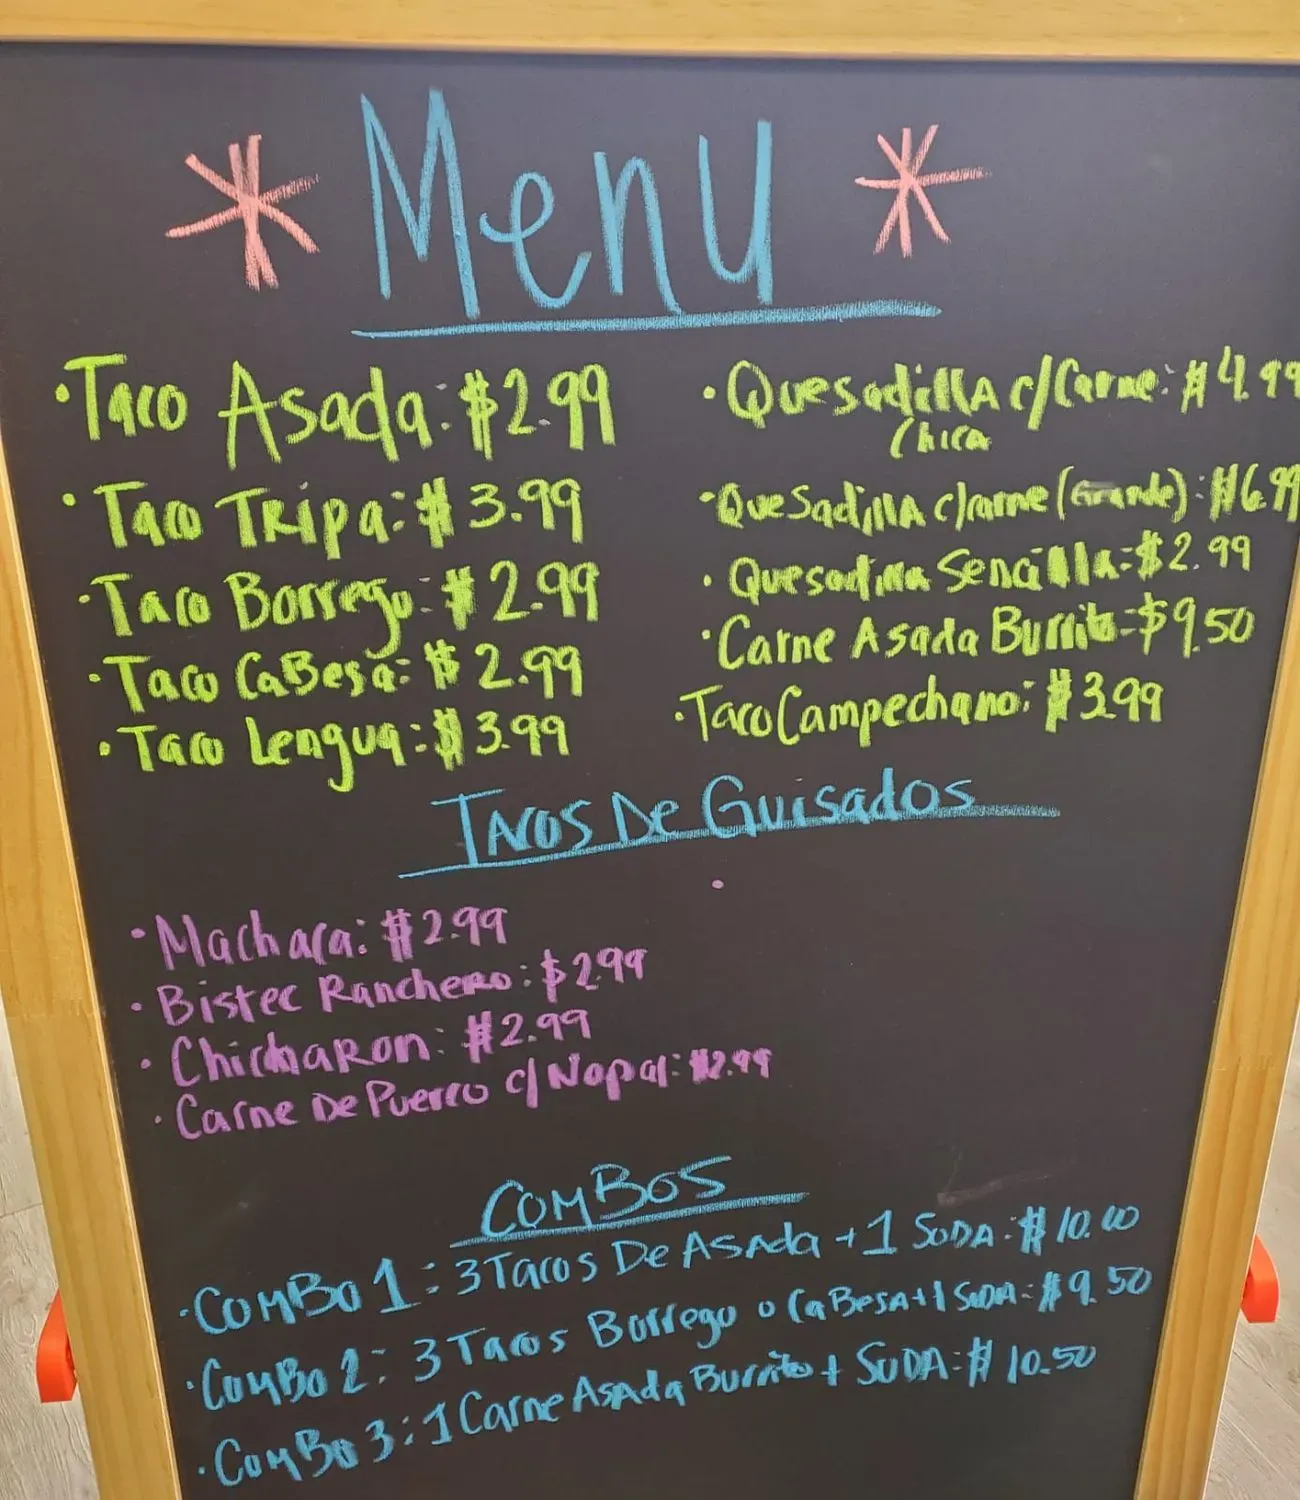 * Menu *
• Taco Asada: $2.99
• Taco Tripa: $3.99
• Taco Borrego: $2.99
• Taco CaBesa: $2.99
• Taco Lengua: $3.99
• Quesadilla c/Carne: $4.99
Chica
• Quesadilla c/carne (Grande): $6.99
• Quesadilla Sencilla: $2.99
• Carne Asada Burrito - $9.50
• Taco Campechano: $3.99
Tacos De Guisados
• Machaca: $2.99
• Bistec Ranchero: $2.99
• Chicharon: $2.99
• Carne De Puerco c/ Nopal: $2.99
ComBos
• ComBo 1: 3 Tacos De Asada + 1 SoDA: $10.00
• ComBo 2: 3 Tacos Borrego o CaBesa + 1 SoDA: $9.50
• ComBo 3: 1 Carne Asada Burrito + SoDA: $10.50